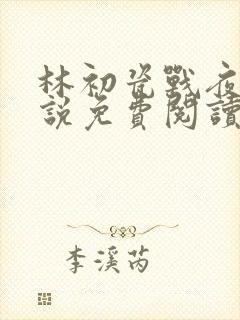 林初瓷戰夜
說免費閱讀
李溪芮